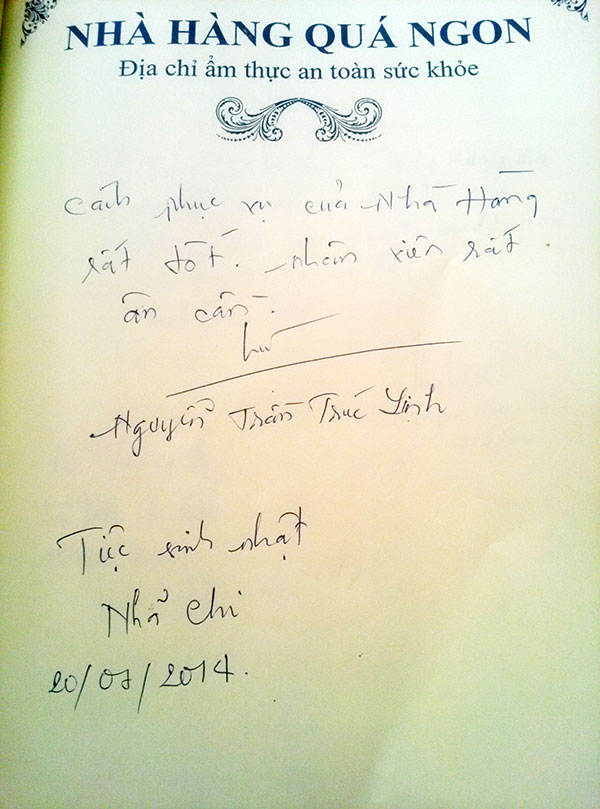 NHÀ HÀNG QUÁ NGON
Địa chỉ ẩm thực an toàn sức khỏe
Cách phục vụ của Nhà Hàng
rất tốt. nhân viên rất
ân cần.
Nguyễn Trần Trúc Linh
Tiệc sinh nhật
Nhã Chi
20/07/2014.